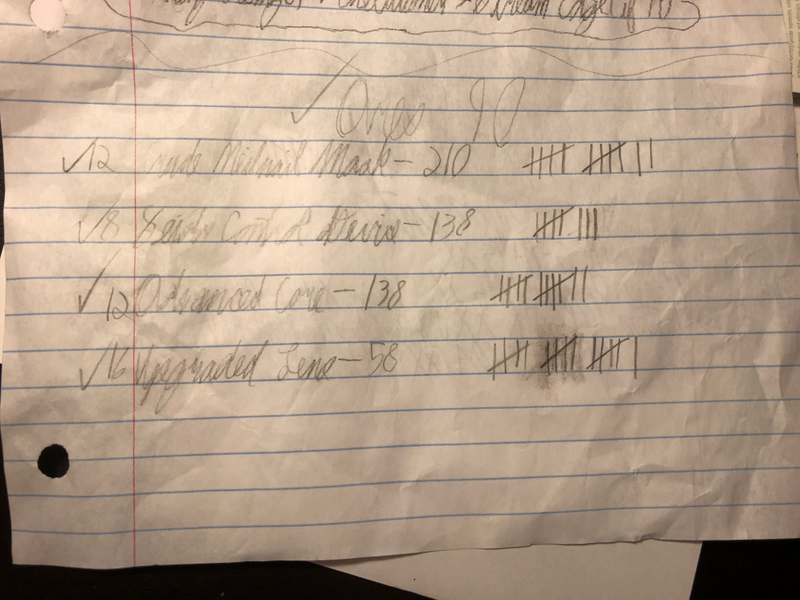 Dream Edge if
✓ Ores 90
✓ 12 Crude Mask - 210
✓ 8 Control Device - 138
✓ 12 Advanced Core - 138
✓ 16 Upgraded Lens - 58